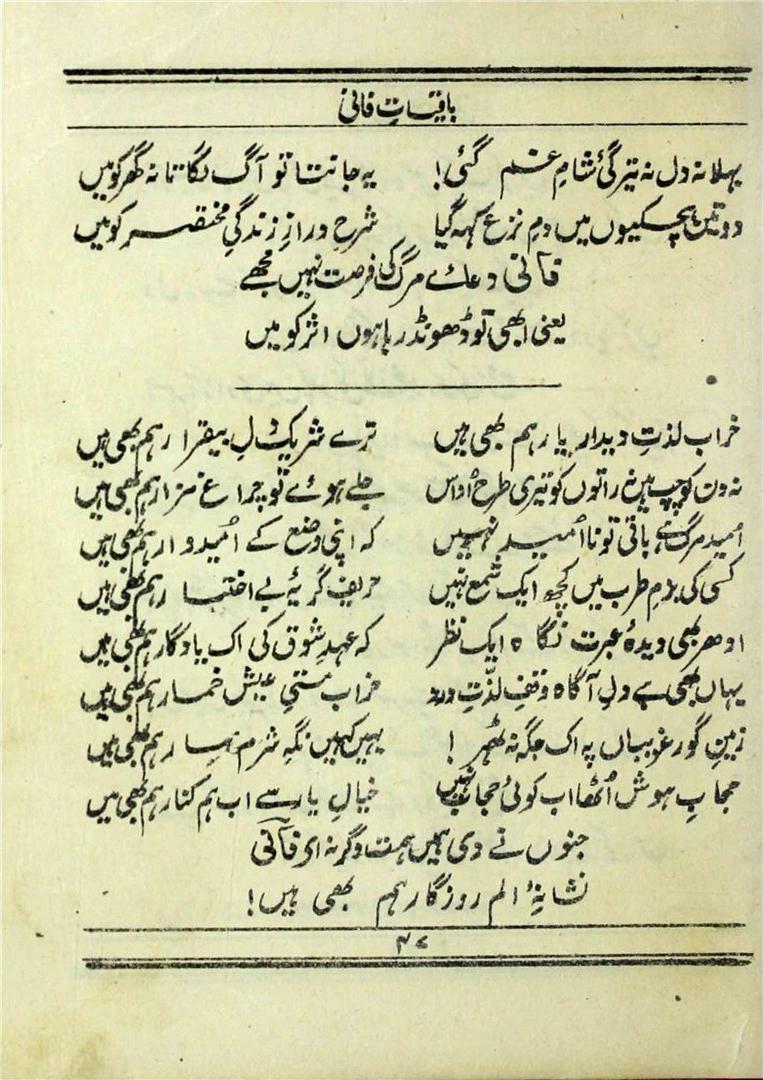 باقیاتِ فانی
بہلا نہ دل نہ تیرگیٔ شامِ غم گئی! یہ جانتا تو آگ لگاتا نہ گھر کو میں
دو تین ہچکیوں میں دمِ نزع کہہ گیا شرحِ درازِ زندگیِ مختصر کو میں
فانی دعائے مرگ کی فرصت نہیں مجھے
یعنی ابھی تو ڈھونڈ رہا ہوں اثر کو میں
خراب لذتِ دیدار یار ہم بھی ہیں ترے شریک دلِ بیقرار ہم بھی ہیں
نہ دن کو چین نہ راتوں کو تیری طرح اُداس جلے ہوئے تو چراغِ مزار ہم بھی ہیں
اُمید مرگ ہے باقی تو نا اُمید نہیں کہ اپنی وضع کے اُمیدوار ہم بھی ہیں
کسی کی بزم طرب میں کچھ ایک شمع نہیں حریفِ گریۂ بے اختیار ہم بھی ہیں
ادھر بھی دیدۂ عبرت نگاہ ایک نظر کہ عہدِ شوق کی اک یادگار ہم بھی ہیں
یہاں بھی ہے دلِ آگاہ وقفِ لذّتِ درد خراب مستیِ عیش خمار ہم بھی ہیں
زمینِ گور غریباں پہ اک جگہ نہ ٹھہر! یہیں کہیں نگہِ شرمسار ہم بھی ہیں
حجابِ ہوش اُٹھا اب کوئی حجاب نہیں خیالِ یار سے اب ہم کنار ہم بھی ہیں
جنوں نے دی ہمیں ہمت وگرنہ اے فانی
نشانۂ الم روزگار ہم بھی ہیں!
۴۷